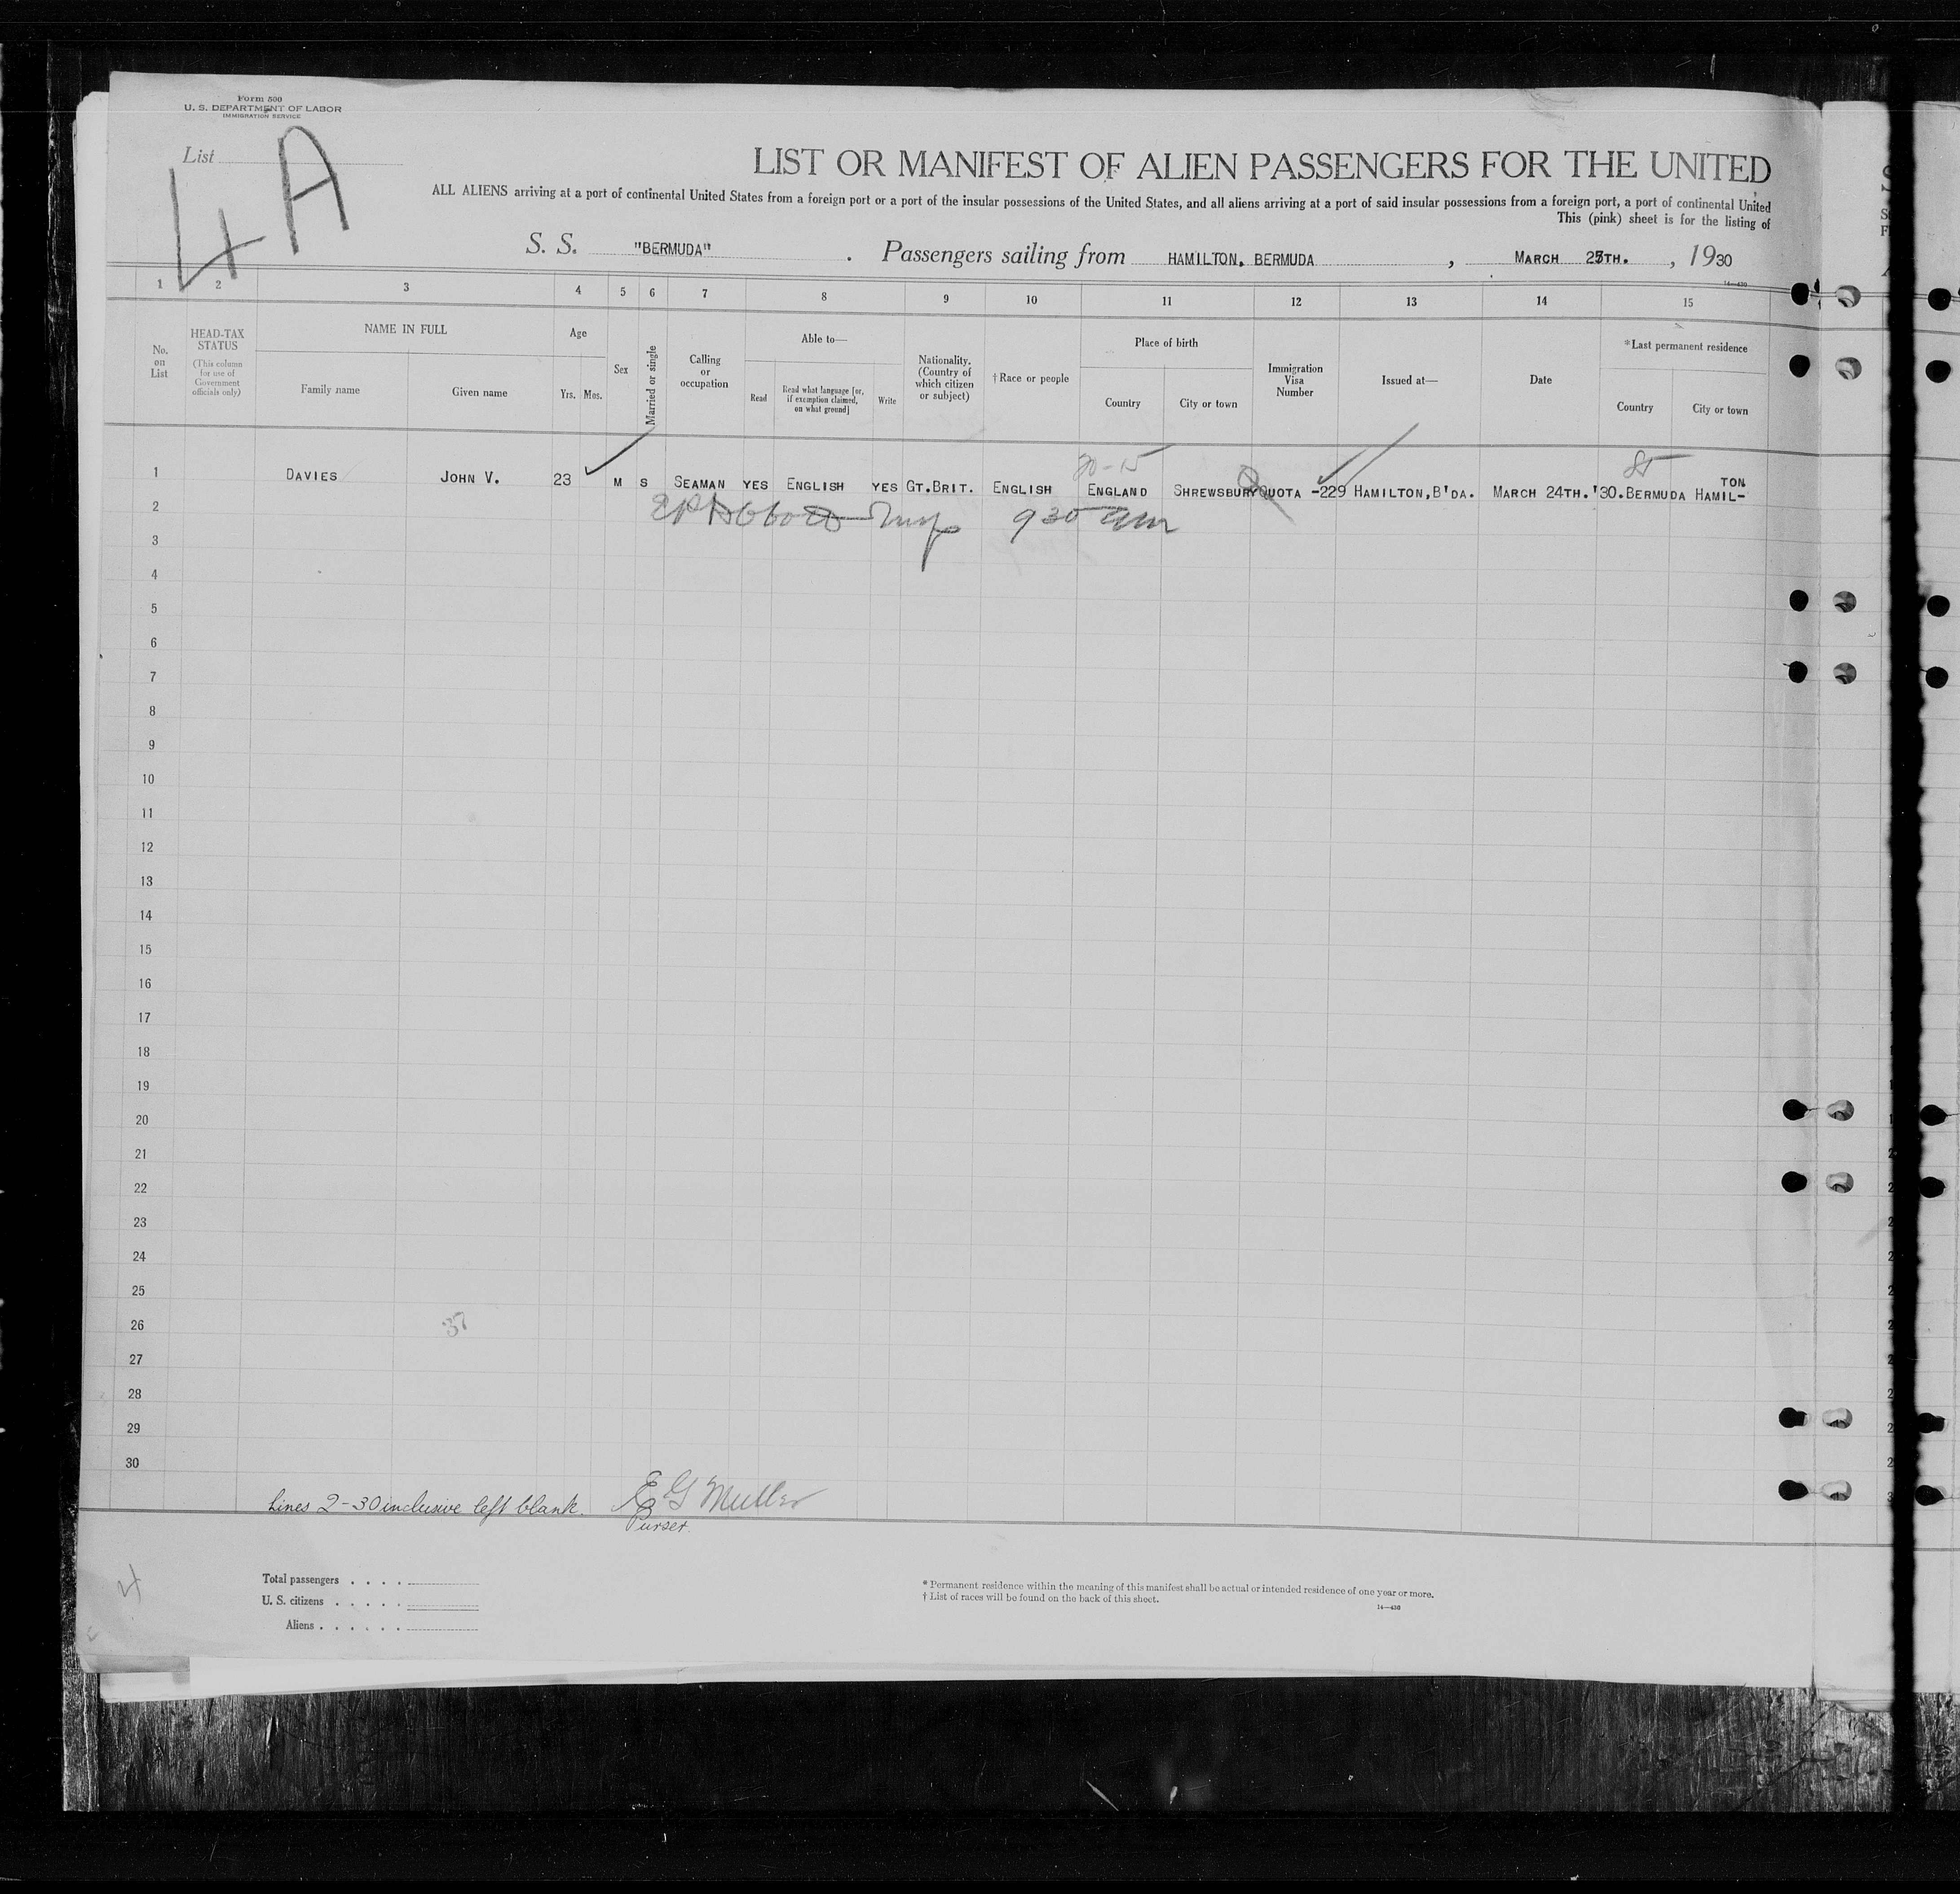 Form 500
U. S. DEPARTMENT OF LABOR
IMMIGRATION SERVICE
List
4A
LIST OR MANIFEST OF ALIEN PASSENGERS FOR THE UNITED
ALL ALIENS arriving at a port of continental United States from a foreign port or a port of the insular possessions of the United States, and all aliens arriving at a port of said insular possessions from a foreign port, a port of continental United
This (pink) sheet is for the listing of
S. S. "BERMUDA". Passengers sailing from HAMILTON, BERMUDA, MARCH 25TH., 1930
14—430
1 2 3 4 5 6 7 8 9 10 11 12 13 14 15
No. on List
HEAD-TAX STATUS
(This column for use of Government officials only)
NAME IN FULL
Family name
Given name
Age
Yrs. Mos.
Sex
Married or single
Calling or occupation
Able to—
Read
Read what language [or, if exemption claimed, on what ground]
Write
Nationality. (Country of which citizen or subject)
† Race or people
Place of birth
Country
City or town
Immigration Visa Number
Issued at—
Date
*Last permanent residence
Country
City or town
1 DAVIES JOHN V. 23 M S SEAMAN YES ENGLISH YES GT.BRIT. ENGLISH ENGLAND SHREWSBURY QUOTA -229 HAMILTON,B'DA. MARCH 24TH.'30. BERMUDA HAMIL-
TON
2 930 am
3
4
5
6
7
8
9
10
11
12
13
14
15
16
17
18
19
20
21
22
23
24
25
26
37
27
28
29
30
Lines 2-30 inclusive left blank. E G Muller
Purser.
4
Total passengers . . . .
U. S. citizens . . . . .
Aliens . . . . . .
* Permanent residence within the meaning of this manifest shall be actual or intended residence of one year or more.
† List of races will be found on the back of this sheet.
14—430